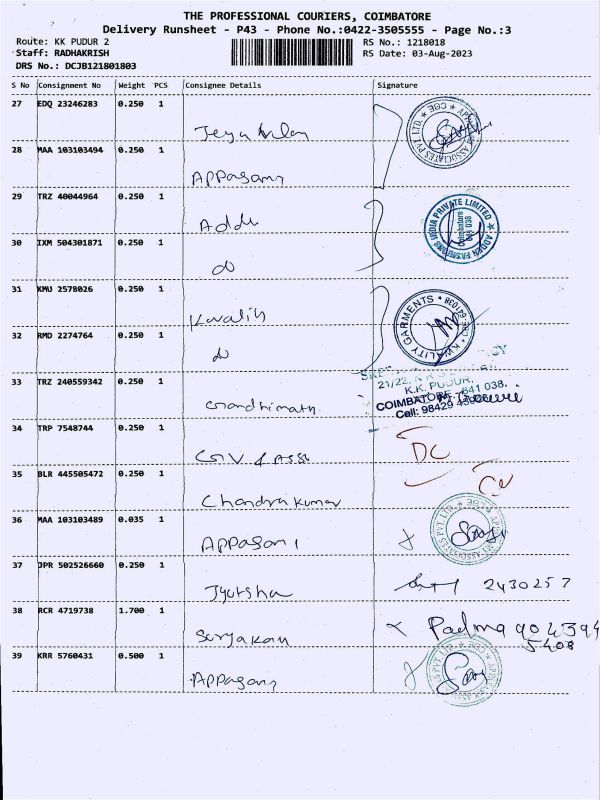 THE PROFESSIONAL COURIERS, COIMBATORE
Delivery Runsheet - P43 - Phone No.:0422-3505555 - Page No.:3
Route: KK PUDUR 2 RS No.: 1218018
Staff: RADHAKRISH RS Date: 03-Aug-2023
DRS No.: DCJB121801803
S No Consignment No Weight PCS Consignee Details Signature
27 EDQ 23246283 0.250 1
28 MAA 103103494 0.250 1
Appasamy
29 TRZ 40044964 0.250 1
Addu
30 IXM 504301871 0.250 1
do
31 KMU 2578026 0.250 1
KWALITY GARMENTS
32 RMD 2274764 0.250 1
do
33 TRZ 240559342 0.250 1
K.K. PUDUR,
COIMBATORE - 641 038.
Cell: 98429
34 TRP 7548744 0.250 1
DC
35 BLR 445505472 0.250 1
Chandrakumar
36 MAA 103103489 0.035 1
Appasami
37 JPR 502526660 0.250 1
Jyotsha 2430257
38 RCR 4719738 1.700 1
Suryakan Padma 904394
5408
39 KRR 5760431 0.500 1
Appasamy